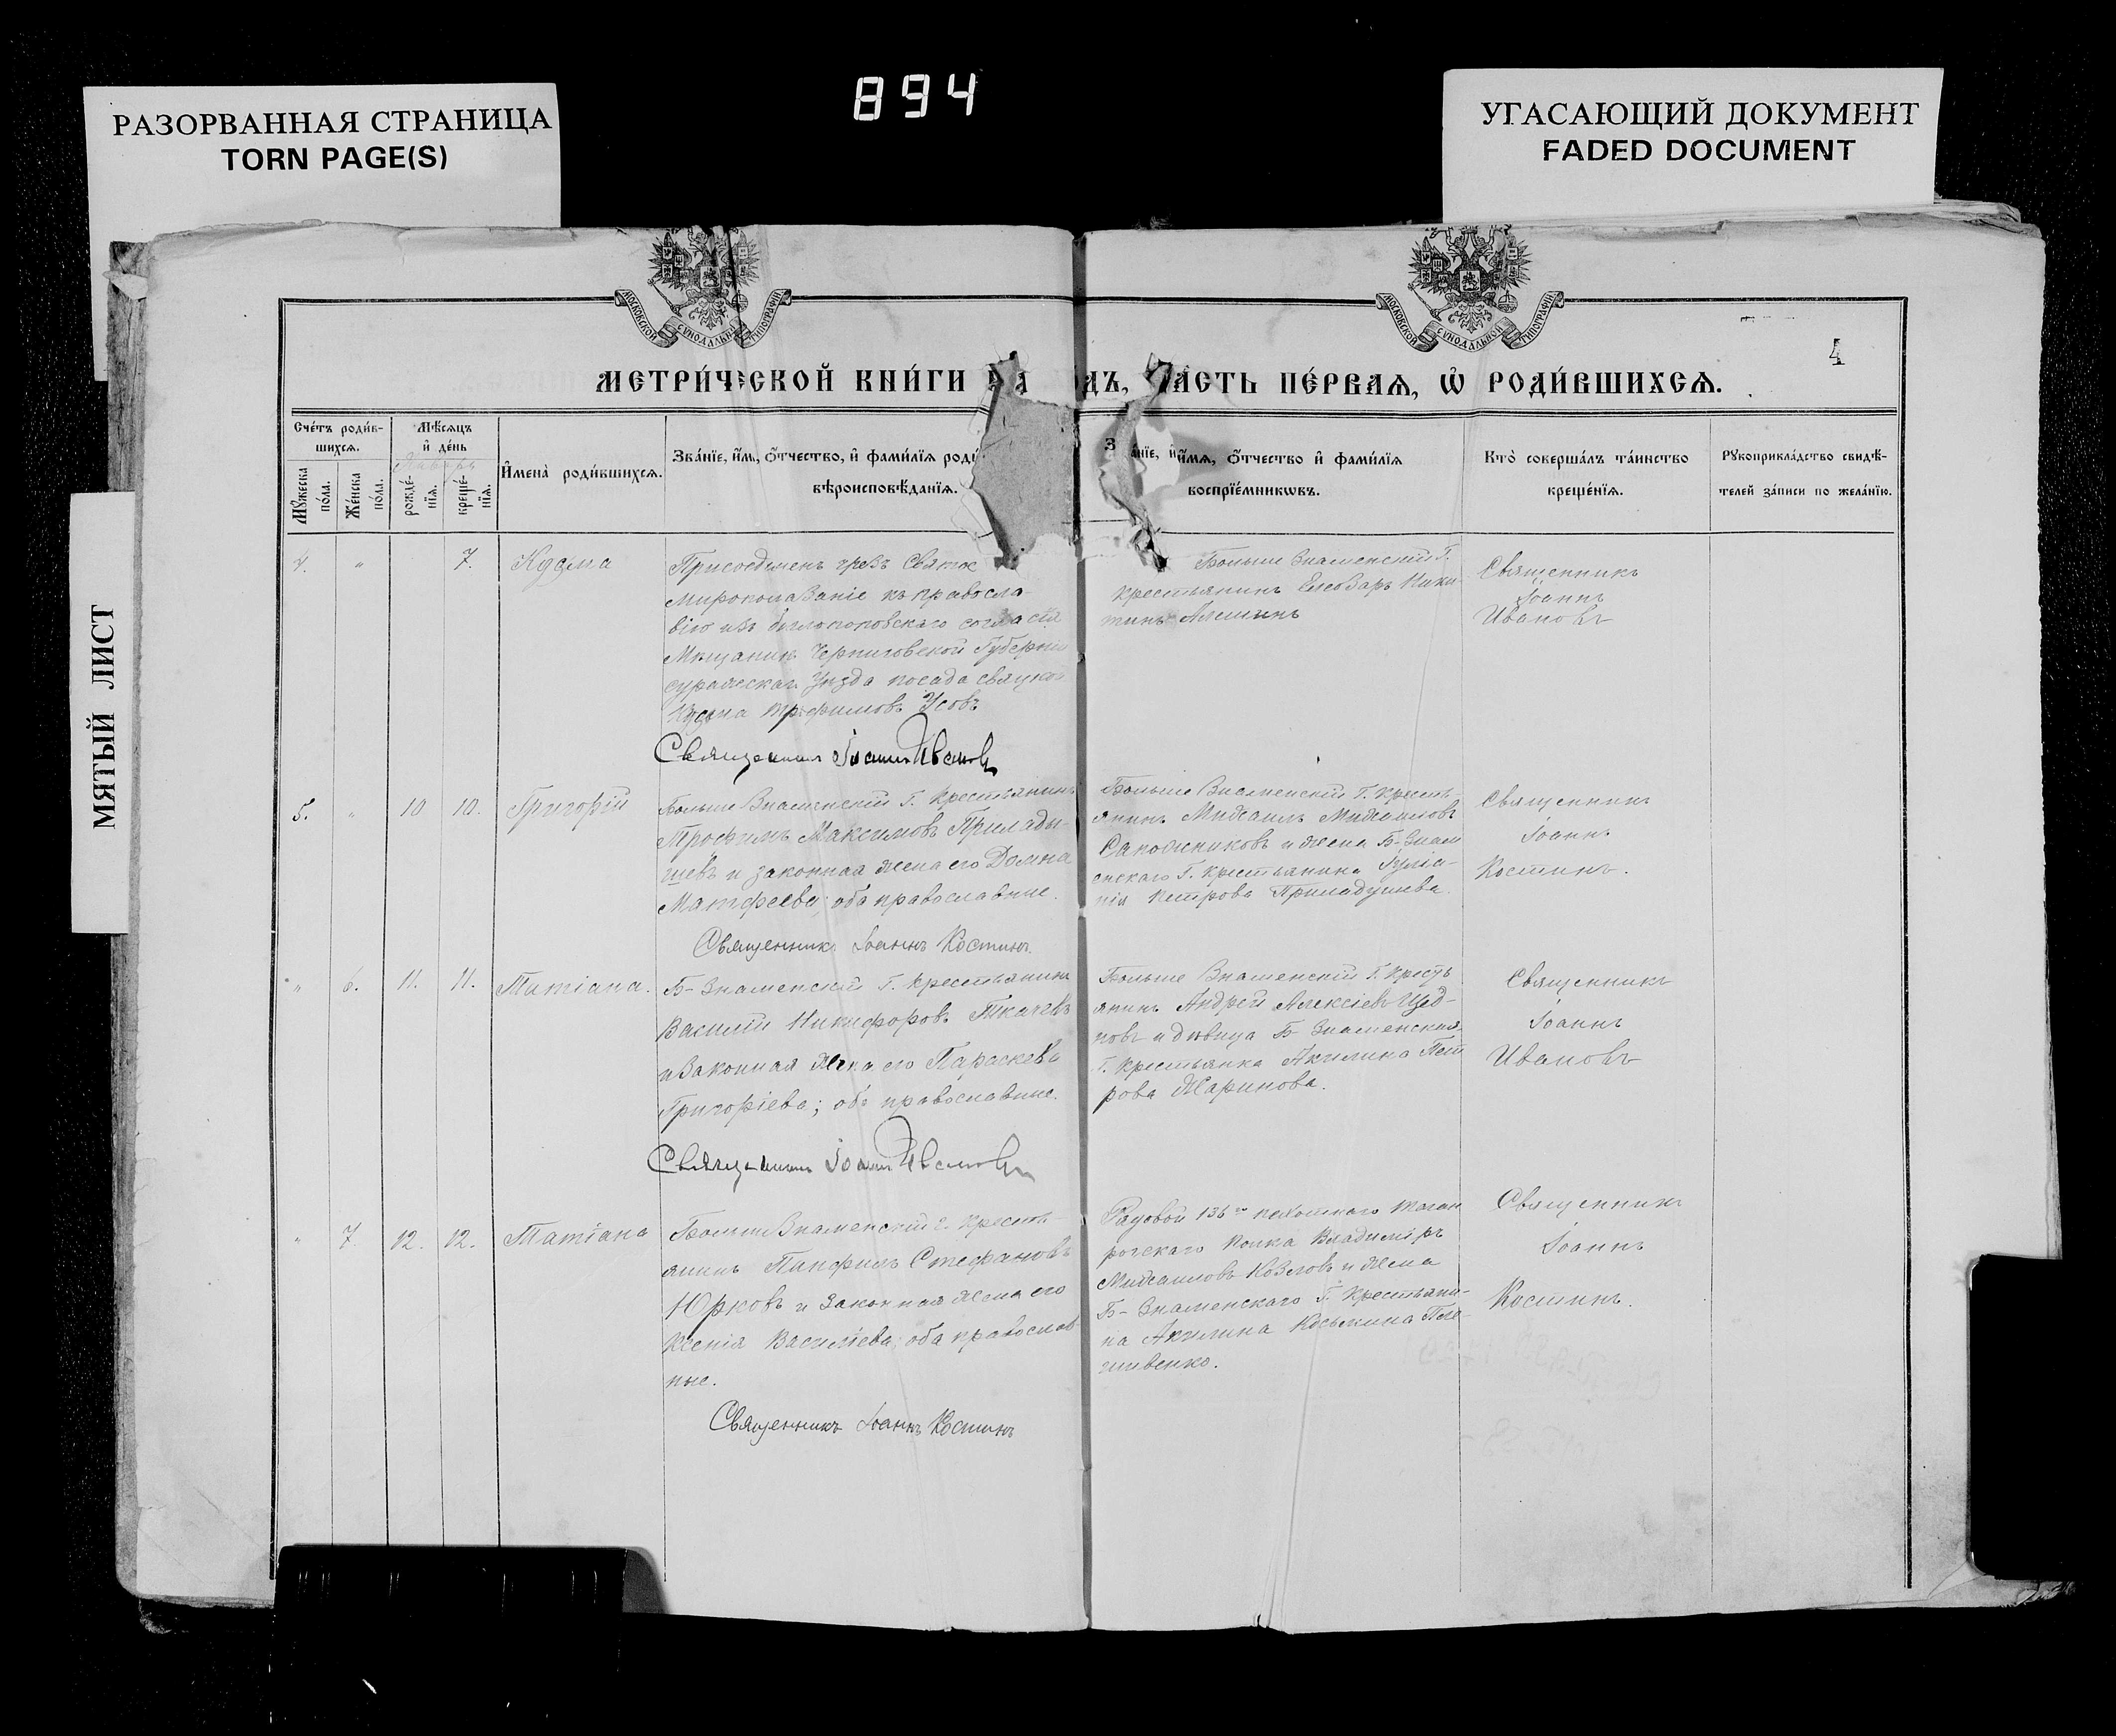 894
РАЗОРВАННАЯ СТРАНИЦА
TORN PAGE(S)
УГАСАЮЩИЙ ДОКУМЕНТ
FADED DOCUMENT
МЯТЫЙ ЛИСТ
МОСКОВСКОЙ СѴНОДАЛЬН ТИПОГРАФІИ
МОСКОВСКОЙ СѴНОДАЛЬНОЙ ТИПОГРАФІИ
4
МЕТРИ́ЧЕСКОЙ КНИ́ГИ НА ДЪ, ЧА́СТЬ ПЕ́РВАЯ, Ѡ РОДИ́ВШИХСЯ.
Сче́тъ роди́в-
шихся.
Мѣ́сяцъ
и҆ де́нь
Январь
Мꙋ́жеска
по́ла.
Же́нска
по́ла.
рожде́-
нїя.
креще́-
нїя.
И҆мена̀ роди́вшихся.
Зва́нїе, и҆́мя, ѻ҆́тчество, и҆ фами́лїя роди
вѣроисповѣ́данїя.
З а́нїе, и҆́мя, ѻ҆́тчество и҆ фами́лїя
воспрїе́мникѡвъ.
Кто̀ соверша́лъ та́инство
креще́нїя.
Рꙋкоприкла́дство свидѣ́-
телей за́писи по жела́нїю.
4. " 7. Козма
Присоединенъ чрезъ Святое
миропомазаніе къ правосла-
вію изъ бѣглопоповскаго согласія
Мѣщанинъ Черниговской Губерніи
суражскаго Уѣзда посада свяцкой
Кузьма Трофимовъ Усовъ
Священникъ Іоаннъ Ивановъ
Больше Знаменскій Г.
крестьянинъ Елеозаръ Ники-
тинъ Алешинъ
Священникъ
Іоаннъ
Ивановъ
5. " 10 10. Григорій
Больше Знаменскій Г. Крестьянинъ
Трофимъ Максимовъ Прилады-
шевъ и законная жена его Домна
Матфеева; оба православные.
Священникъ Іоаннъ Костинъ.
Больше Знаменскій Г. Кресть-
янинъ Михаилъ Михаиловъ
Сапожниковъ и жена Б-Знам
енскаго Г. Крестьянина Іуліа-
нія Петрова Приладышева.
Священникъ
Іоаннъ
Костинъ.
" 6. 11. 11. Татіана.
Б-Знаменскій Г. Крестьянинъ
Василій Никифоровъ Ткачевъ
и Законная Жена его Параскева
Григоріева; оба православные.
Священникъ Іоаннъ Ивановъ
Больше Знаменскій Г. Кресть
янинъ Андрей Алексіевъ
и дѣвица Б-Знаменская
Г. Крестьянка Акилина Пет
рова Жаринова.
Священникъ
Іоаннъ
Ивановъ
" 7. 12. 12. Татіана
Больше Знаменскій Г. Кресть-
янинъ Панфилъ Стефановъ
Юрковъ и Законная жена его
Ксенія Василіева; оба православ
ные.
Священникъ Іоаннъ Костинъ
Рядовой 136го пехотнаго Таган
рогскаго Полка Владиміръ
Михаиловъ Козловъ и жена
Б-Знаменскаго Г. Крестьяни-
на Акилина Козьмина
Священникъ
Іоаннъ
Костинъ.